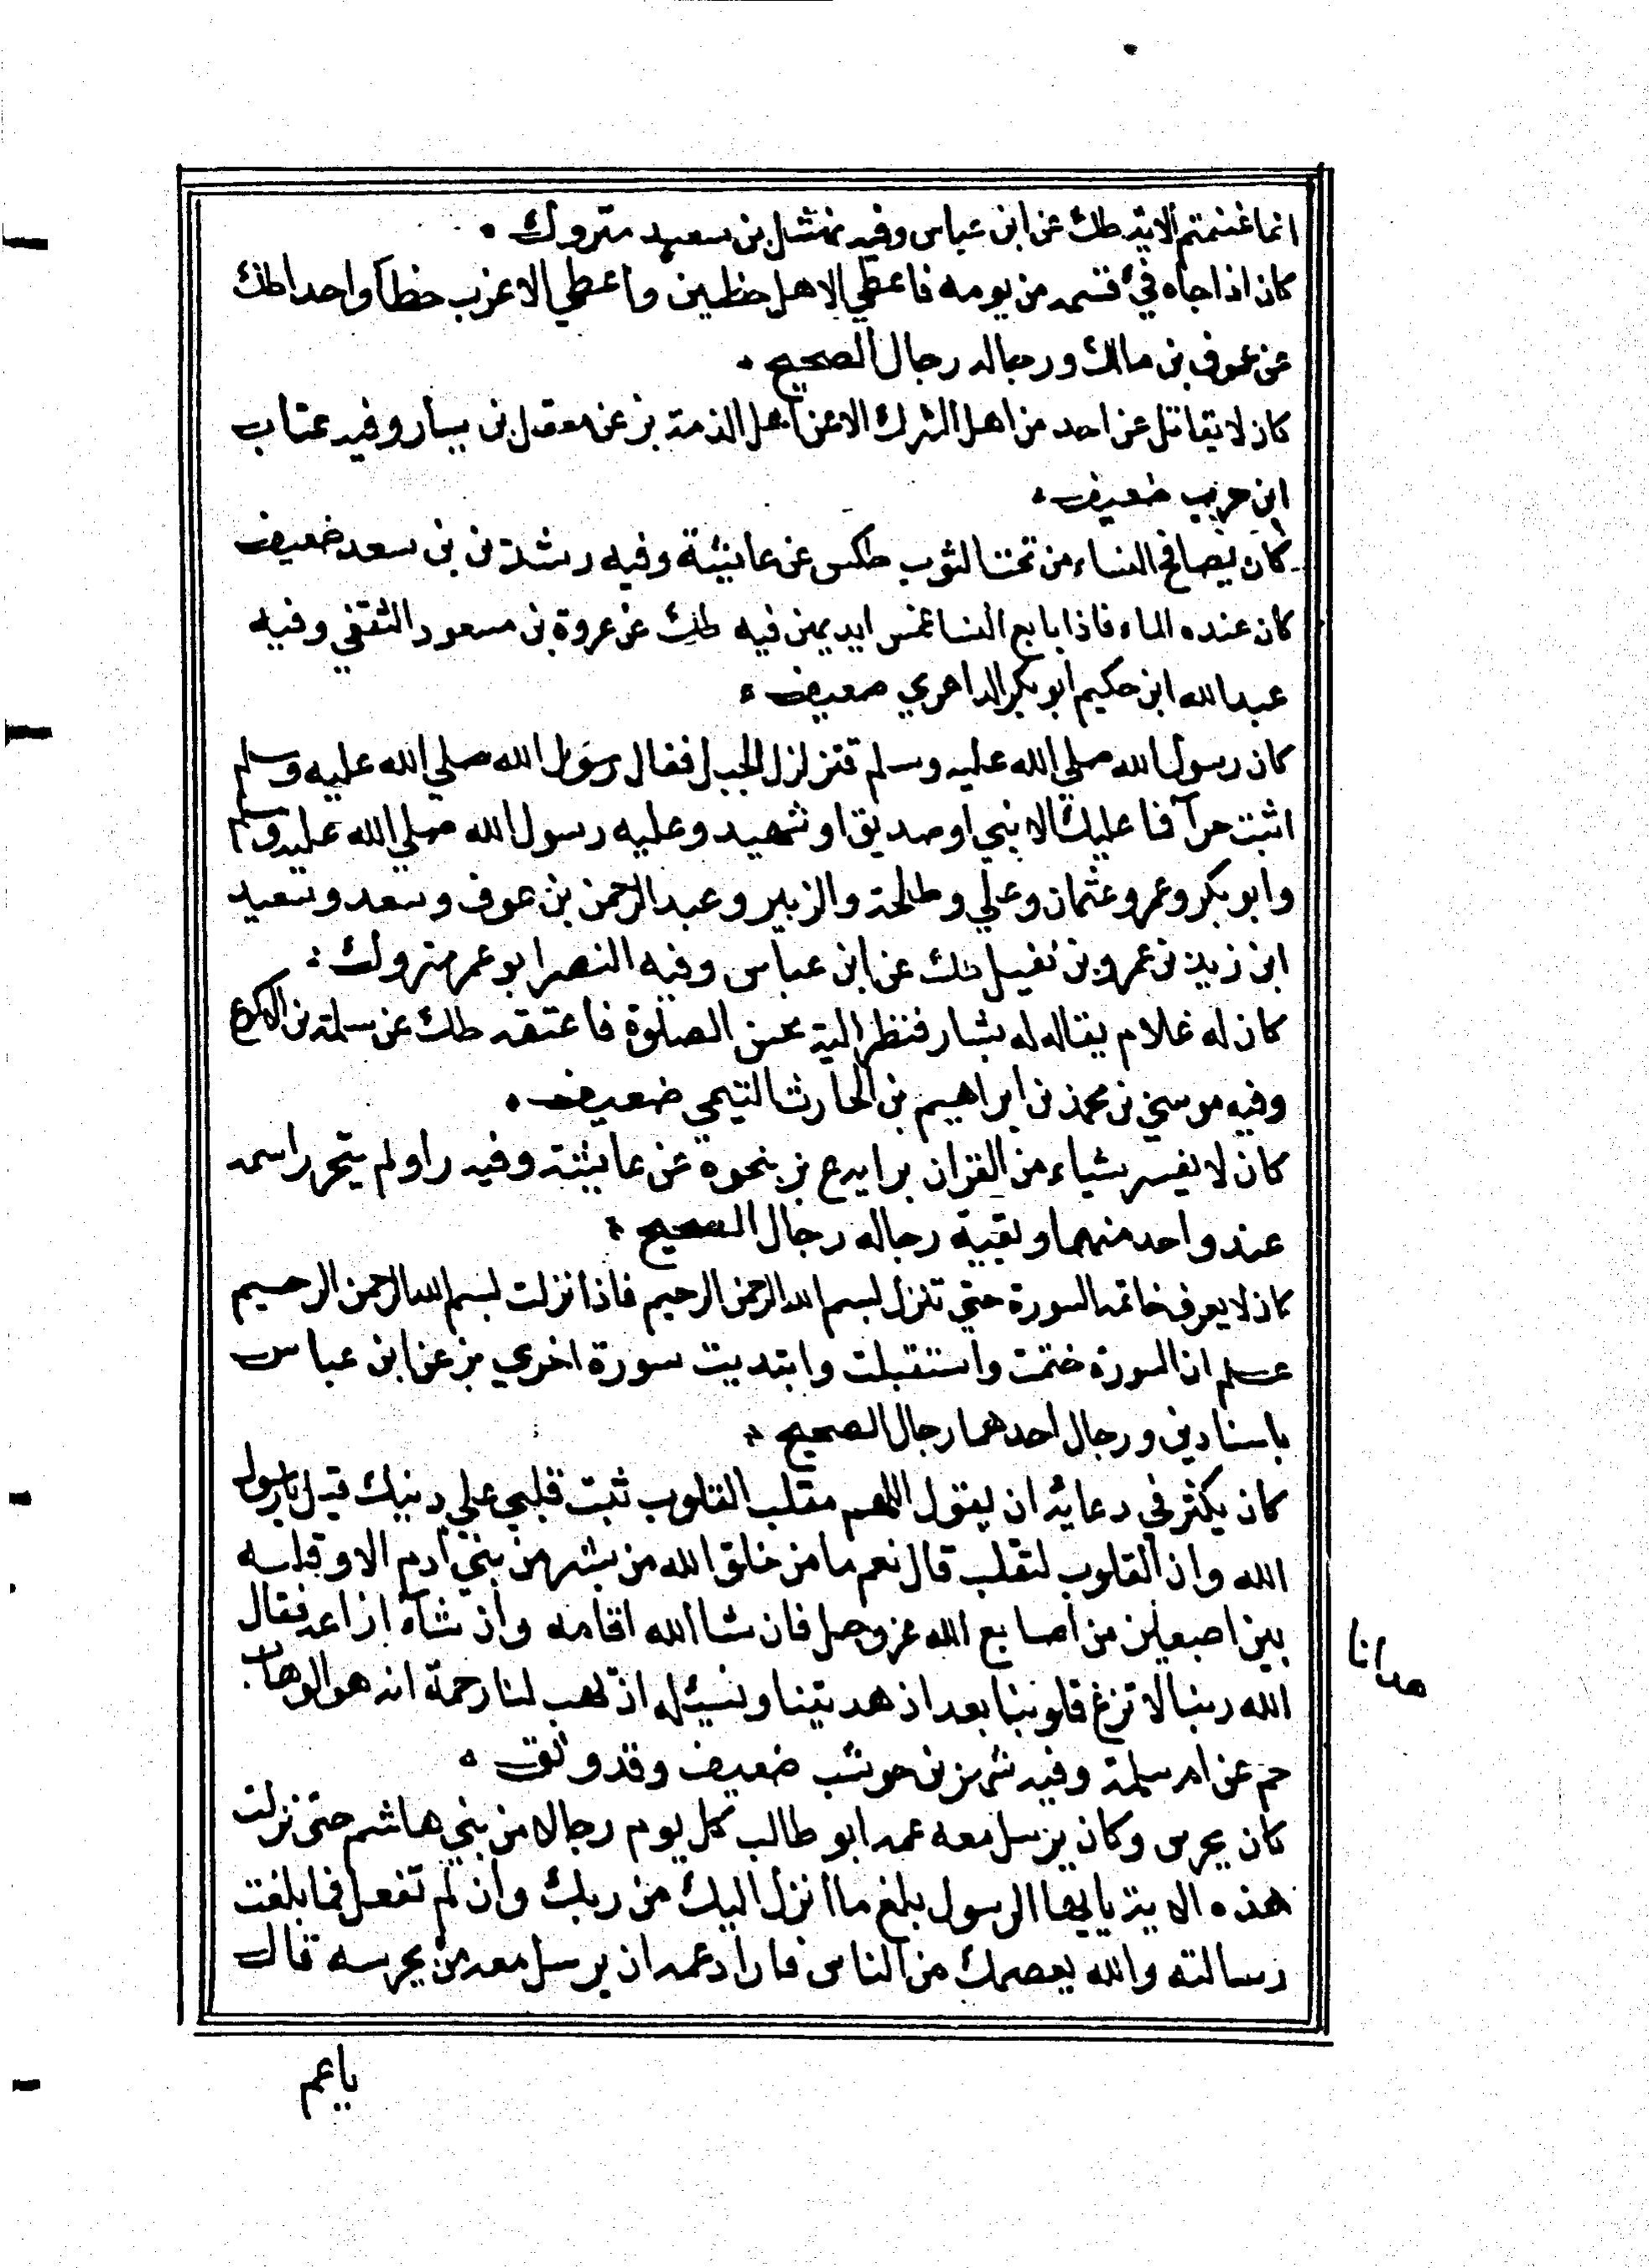 انما غنمتم الاية طك عن ابن عباس وفيه نهشل بن سعيد متروك
كان اذا جاه فيء قسمه من يومه فاعطي الاهل حظين واعطي الاعزب حظا واحدا طك
عن عوف بن مالك ورجاله رجال الصحيح
كان لا يقاتل عن احد من اهل الشرك الا عن اهل الذمة بز عن معقل بن يسار وفيه عتاب
ابن حرب ضعيف
كان يصافح النساء من تحت الثوب طكس عن عايشة وفيه رشدين بن سعد ضعيف
كان عنده الماء فاذا بايع النسا غمس ايديهن فيه طك عن عروة بن مسعود الثقفي وفيه
عبد الله ابن حكيم ابو بكر الداهري ضعيف
كان رسول الله صلي الله عليه وسلم فتزلزل الجبل فقال رسول الله صلي الله عليه وسلم
اثبت حرآ فما عليك الا نبي او صديق او شهيد وعليه رسول الله صلي الله عليه وسلم
وابو بكر وعمر وعثمان وعلي وطلحة والزبير وعبد الرحمن بن عوف وسعد وسعيد
ابن زيد بن عمرو بن نفيل طك عن ابن عباس وفيه النصر ابو عمر متروك
كان له غلام يقال له يسار فنظر الية يحسن الصلوة فاعتقه طك عن سلمة بن الاكوع
وفيه موسي بن محمد بن ابراهيم بن الحارث التيمي ضعيف
كان لا يفسر شياء من القران برايه ع بز بنحوه عن عايشة وفيه راو لم يتحرر اسمه
عند واحد منهما وبقية رجاله رجال الصحيح
كان لا يعرف خاتمه السورة حتي تنزل بسم الله الرحمن الرحيم فاذا نزلت بسم الله الرحمن الرحسيم
علم ان السورة ختمت واستقبلت وابتديت سورة اخري بز عن ابن عباس
باسنادين ورجال احدهما رجال الصحيح
كان يكثر في دعايه ان يقول اللهم مقلب القلوب ثبت قلبي علي دينك قيل يارسول
الله وان القلوب لتقلب قال نعم ما من خلق الله من بشر من بني آدم الا وقلبه
بين اصبعين من اصابع الله عز وجل فان شا الله اقامه وان شآه ازاغه فقال
الله ربنا لا تزغ قلوبنا بعد اذ هديتنا ونسئله اذ يهب لنا رحمة انه هو الوهاب
هدانا
حم عن ام سلمة وفيه شهر بن حوشب ضعيف وقد وثق
كان يحرس وكان يرسل معه عمه ابو طالب كل يوم رجالا من بني هاشم حتى نزلت
هذه الاية يايها الرسول بلغ ما انزل اليك من ربك وان لم تفعل فما بلغت
رسالته والله يعصمك من الناس فاراد عمه ان يرسل معه من يحرسه قال
ياعم